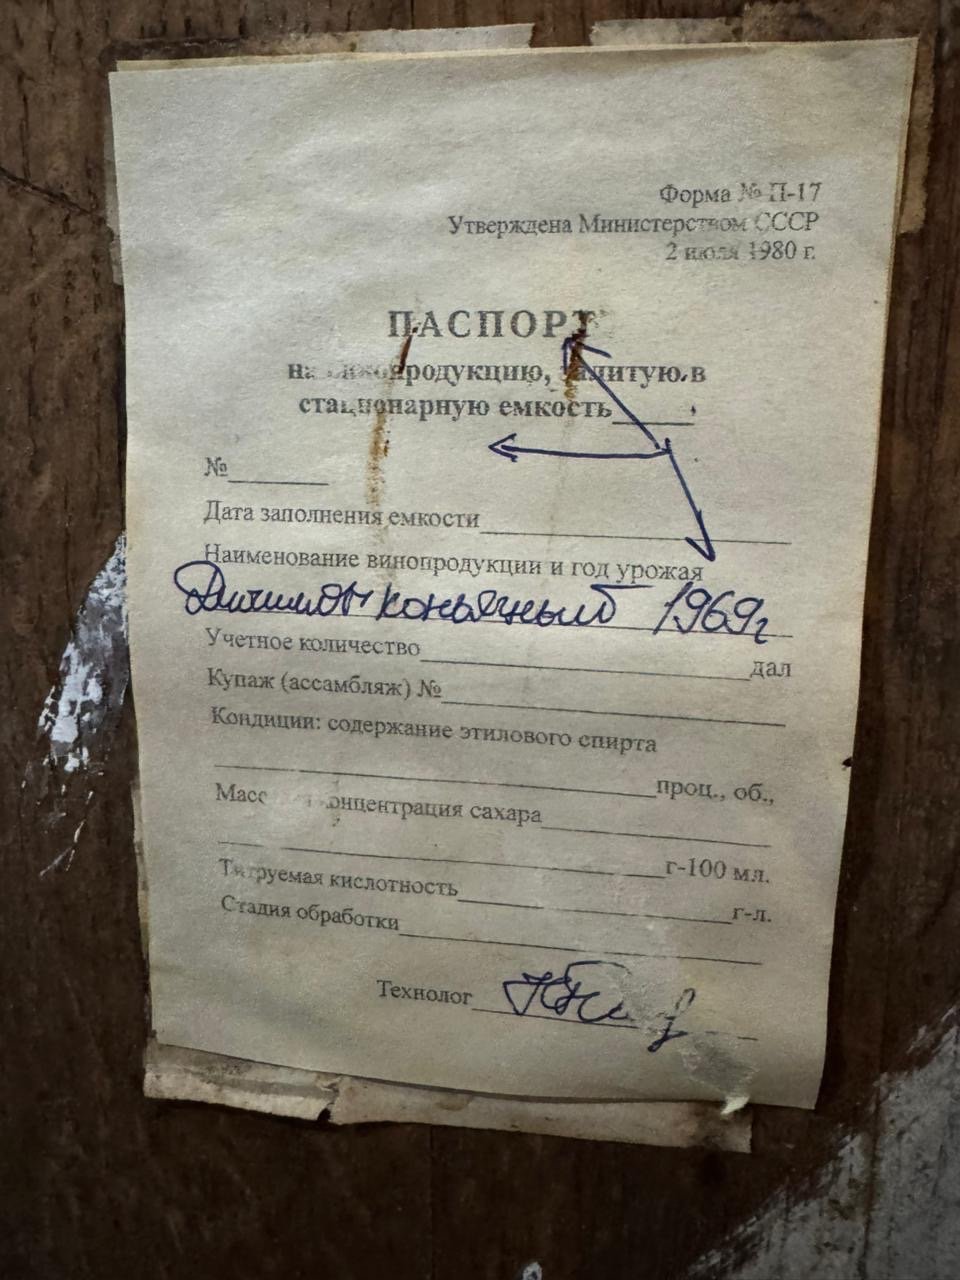 Форма № П-17
Утверждена Министерством СССР
2 июля 1980 г.
ПАСПОРТ
на винопродукцию, залитую в
стационарную емкость
№
Дата заполнения емкости
Наименование винопродукции и год урожая
коньячный 1969г
Учетное количество дал
Купаж (ассамбляж) №
Кондиции: содержание этилового спирта
проц., об.,
концентрация сахара
г-100 мл.
Титруемая кислотность г-л.
Стадия обработки
Технолог